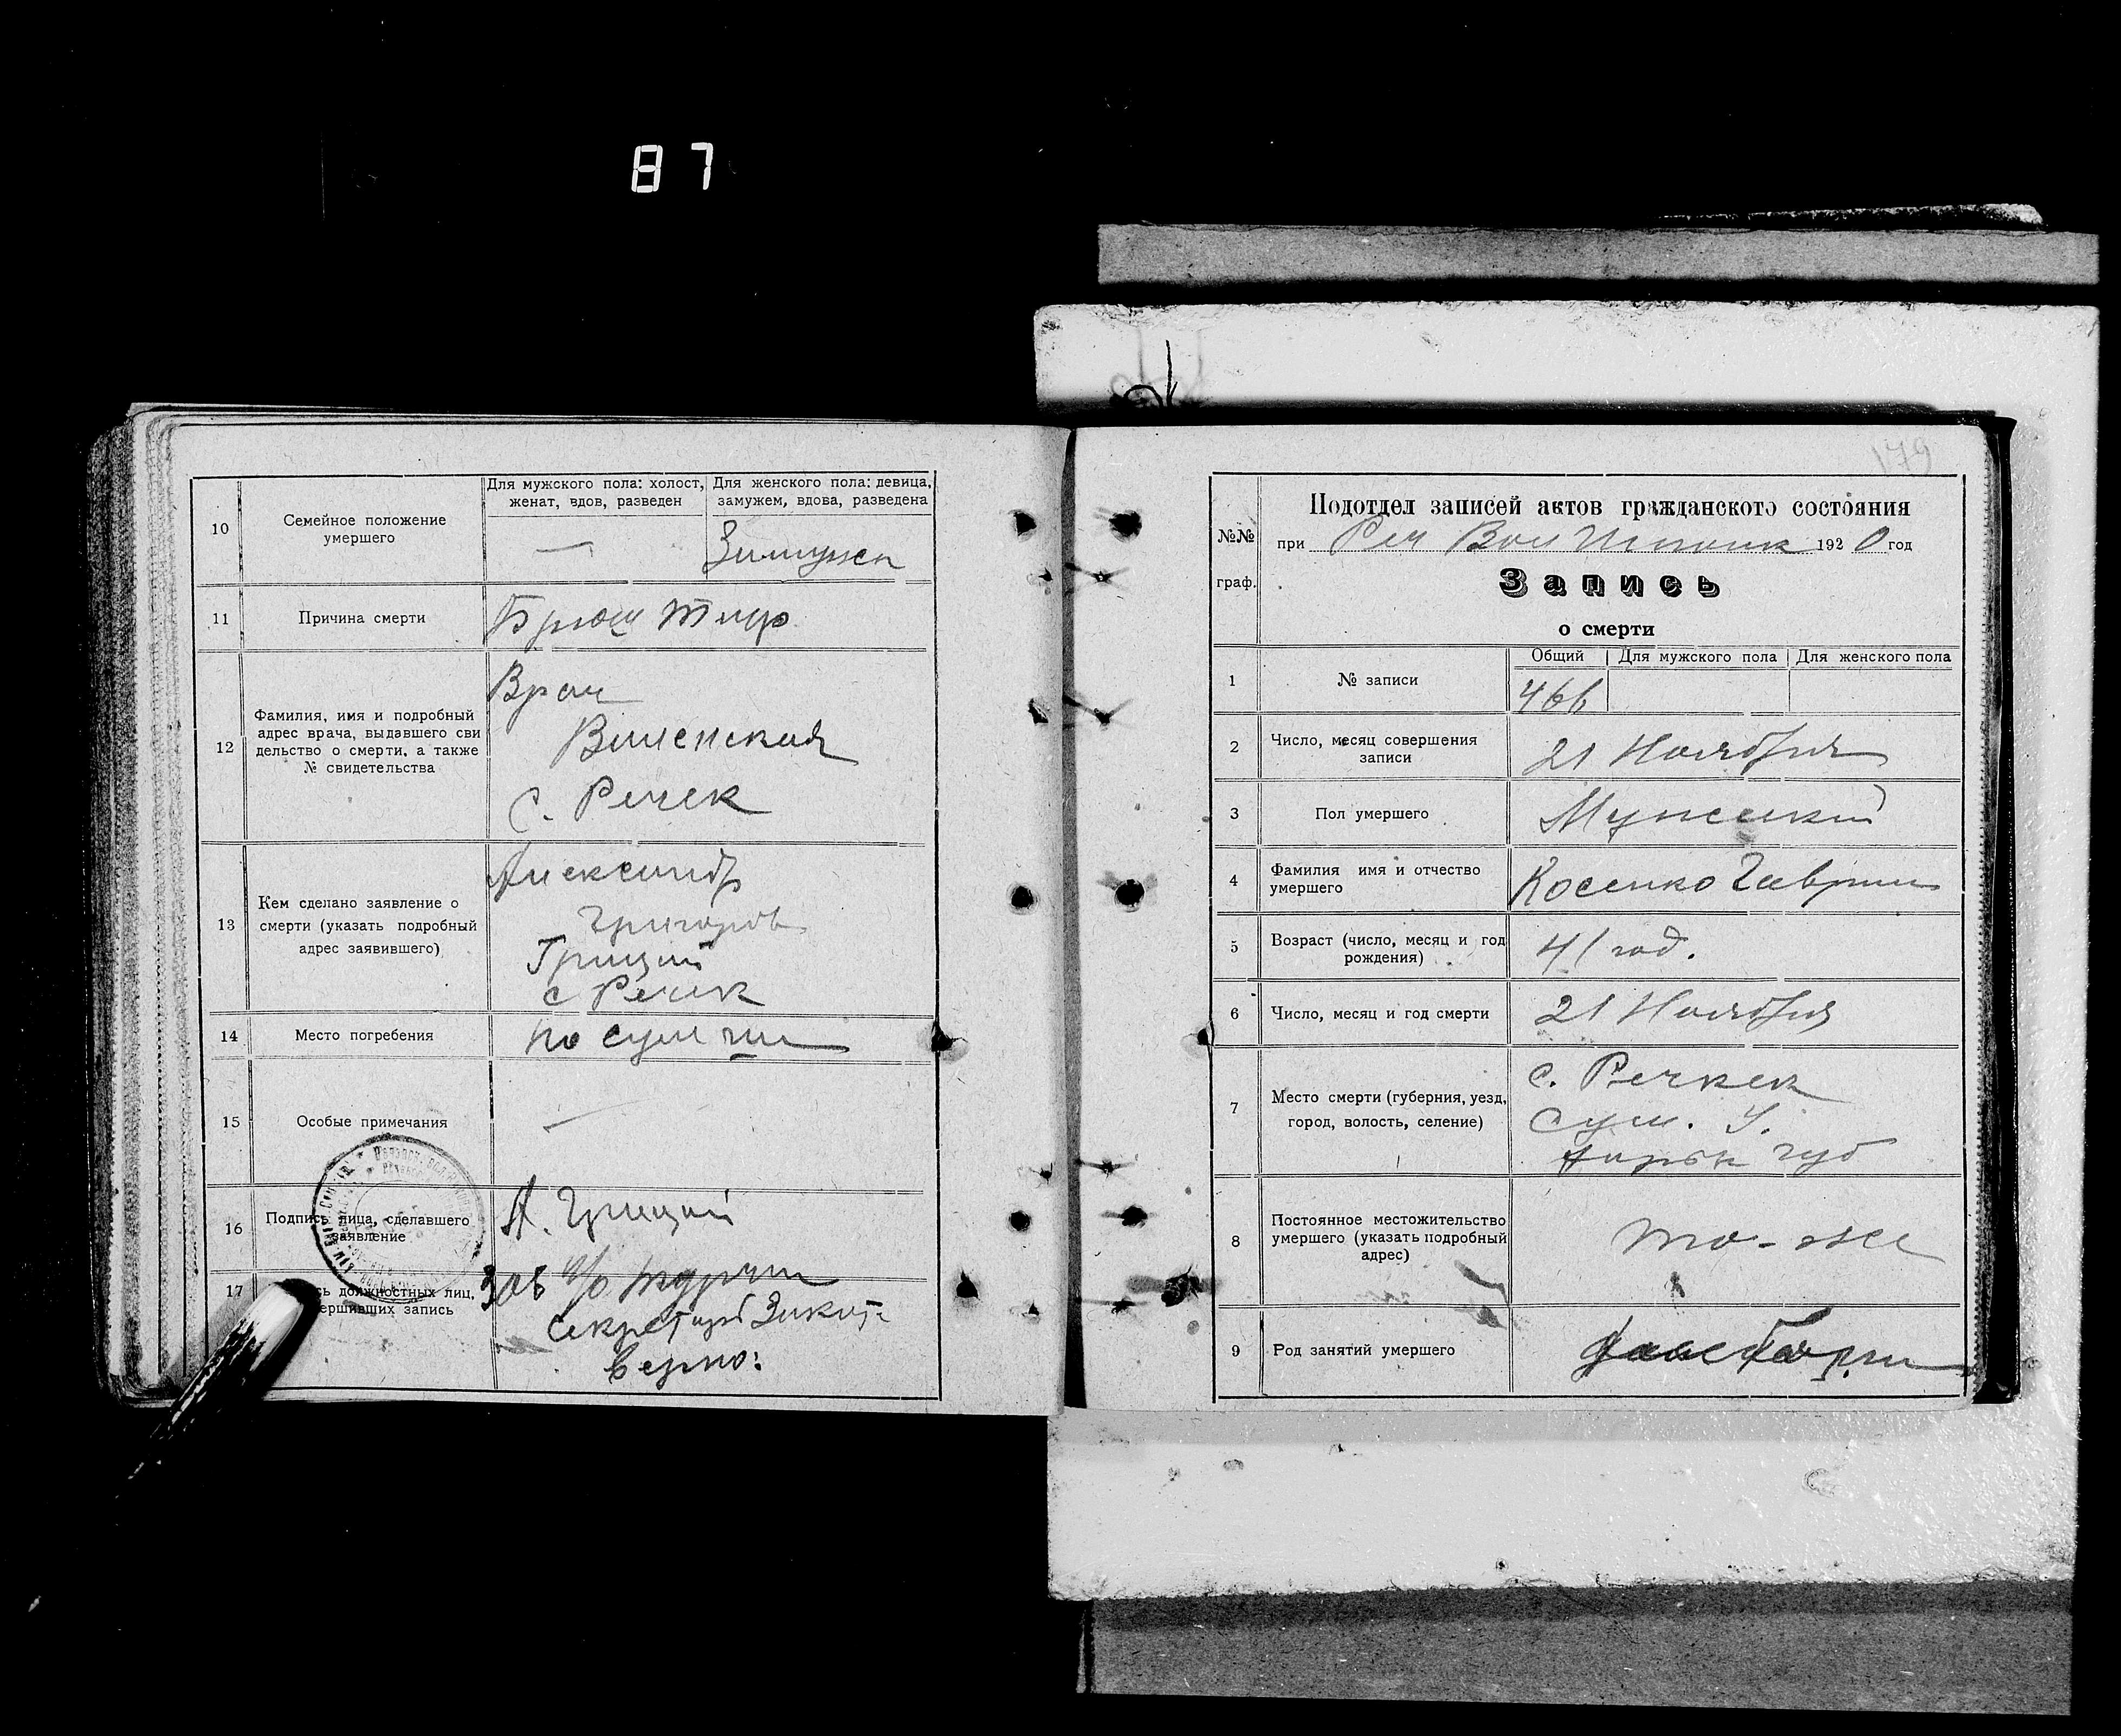 87
10
Семейное положение
умершего
Для мужского пола: холост,
женат, вдов, разведен
Для женского пола: девица,
замужем, вдова, разведена
—
Замужем
11
Причина смерти
Брюш тиф
12
Фамилия, имя и подробный
адрес врача, выдавшего сви
дельство о смерти, а также
№ свидетельства
Врач
Виленская
с. Речек
13
Кем сделано заявление о
смерти (указать подробный
адрес заявившего)
Александр
Григоров
Грицай
с Речек
14
Место погребения
15
Особые примечания
—
16
Подпись лица, сделавшего
заявление
А. Грицай
17
сь должностных лиц,
ершивших запись
Зав п/о
Секретарь
Верно:
179
№№
граф.
Подотдел записей актов гражданского состояния
при Реч Вол 1920 год
Запись
о смерти
1
№ записи
Общий
Для мужского пола
Для женского пола
466
2
Число, месяц совершения
записи
21 Ноября
3
Пол умершего
Мужеский
4
Фамилия имя и отчество
умершего
Косенко Гаврил
5
Возраст (число, месяц и год
рождения)
41 год.
6
Число, месяц и год смерти
21 Ноября
7
Место смерти (губерния, уезд,
город, волость, селение)
с. Речкек
Сум. У.
Харьк губ
8
Постоянное местожительство
умершего (указать подробный
адрес)
то-же
9
Род занятий умершего